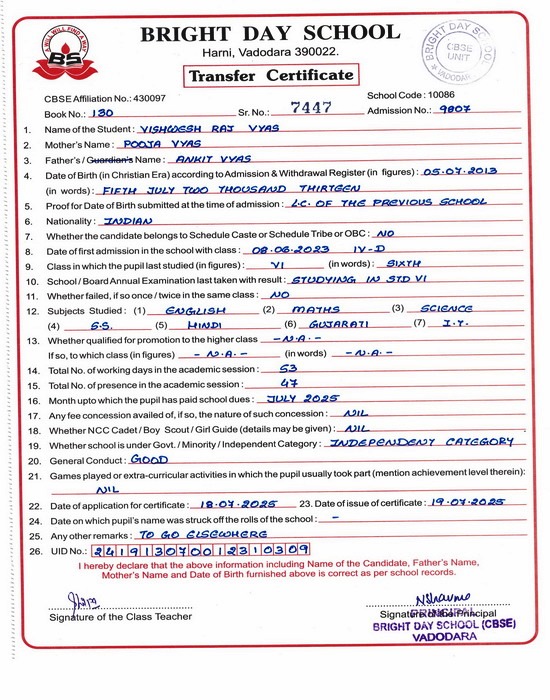 A WILL WILL FIND A WAY
BS
BRIGHT DAY SCHOOL
Harni, Vadodara 390022.
Transfer Certificate
BRIGHT DAY SCHOOL
CBSE
UNIT
VADODARA
CBSE Affiliation No.: 430097 School Code : 10086
Book No.: 130 Sr. No.: 7447 Admission No.: 9807
1. Name of the Student : VISHWESH RAJ VYAS
2. Mother's Name : POOJA VYAS
3. Father's / Guardian's Name : ANKIT VYAS
4. Date of Birth (in Christian Era) according to Admission & Withdrawal Register (in figures) : 05.07.2013
(in words) : FIFTH JULY TWO THOUSAND THIRTEEN
5. Proof for Date of Birth submitted at the time of admission : L.C. OF THE PREVIOUS SCHOOL
6. Nationality : INDIAN
7. Whether the candidate belongs to Schedule Caste or Schedule Tribe or OBC : NO
8. Date of first admission in the school with class : 08.06.2023 IV-D
9. Class in which the pupil last studied (in figures) : VI (in words) : SIXTH
10. School / Board Annual Examination last taken with result : STUDYING IN STD VI
11. Whether failed, if so once / twice in the same class : NO
12. Subjects Studied : (1) ENGLISH (2) MATHS (3) SCIENCE
(4) S.S. (5) HINDI (6) GUJARATI (7) I.T.
13. Whether qualified for promotion to the higher class - N.A. -
If so, to which class (in figures) - N.A. - (in words) - N.A. -
14. Total No. of working days in the academic session : 53
15. Total No. of presence in the academic session : 47
16. Month upto which the pupil has paid school dues : JULY 2025
17. Any fee concession availed of, if so, the nature of such concession : NIL
18. Whether NCC Cadet / Boy Scout / Girl Guide (details may be given) : NIL
19. Whether school is under Govt. / Minority / Independent Category : INDEPENDENT CATEGORY
20. General Conduct : GOOD
21. Games played or extra-curricular activities in which the pupil usually took part (mention achievement level therein):
NIL
22. Date of application for certificate : 18.07.2025 23. Date of issue of certificate : 19.07.2025
24. Date on which pupil's name was struck off the rolls of the school : -
25. Any other remarks : TO GO ELSEWHERE
26. UID No.: 241913070012310309
I hereby declare that the above information including Name of the Candidate, Father's Name,
Mother's Name and Date of Birth furnished above is correct as per school records.
Signature of the Class Teacher Signature of the Principal
PRINCIPAL
BRIGHT DAY SCHOOL (CBSE)
VADODARA